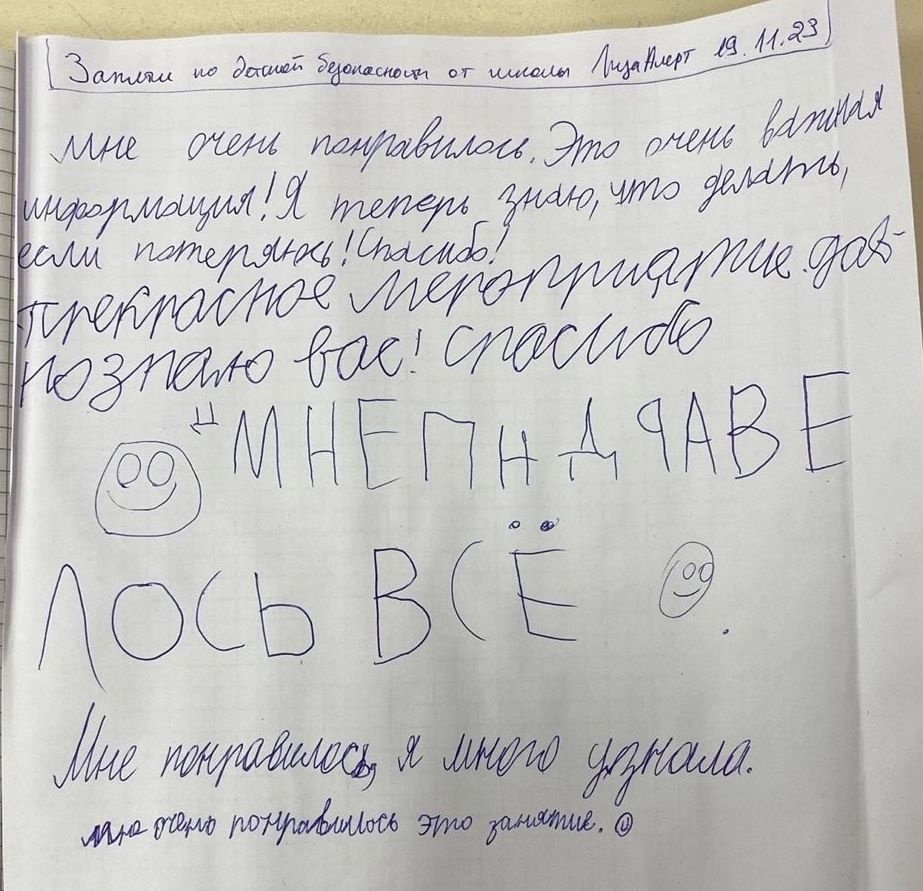 Занятие по детской безопасности от школы ЛизаАлерт 19.11.23
Мне очень понравилось. Это очень важная
информация! Я теперь знаю, что делать,
если потеряюсь! Спасибо!
Прекрасное мероприятие. дав-
но знаю вас! Спасибо
МНЕ П Н Д ЯАВЕ
ЛОСЬ ВСЁ
Мне понравилось, я много узнала.
мне очень понравилось это занятие.